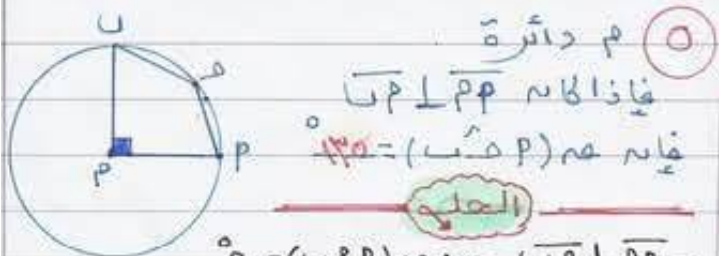 ٥ م دائرة
فإذا كانه م‌أ ⊥ م‌ب
فإنه مه (أ حـ ب) = ١٣٥°
الحلـ
ب
حـ
م
أ